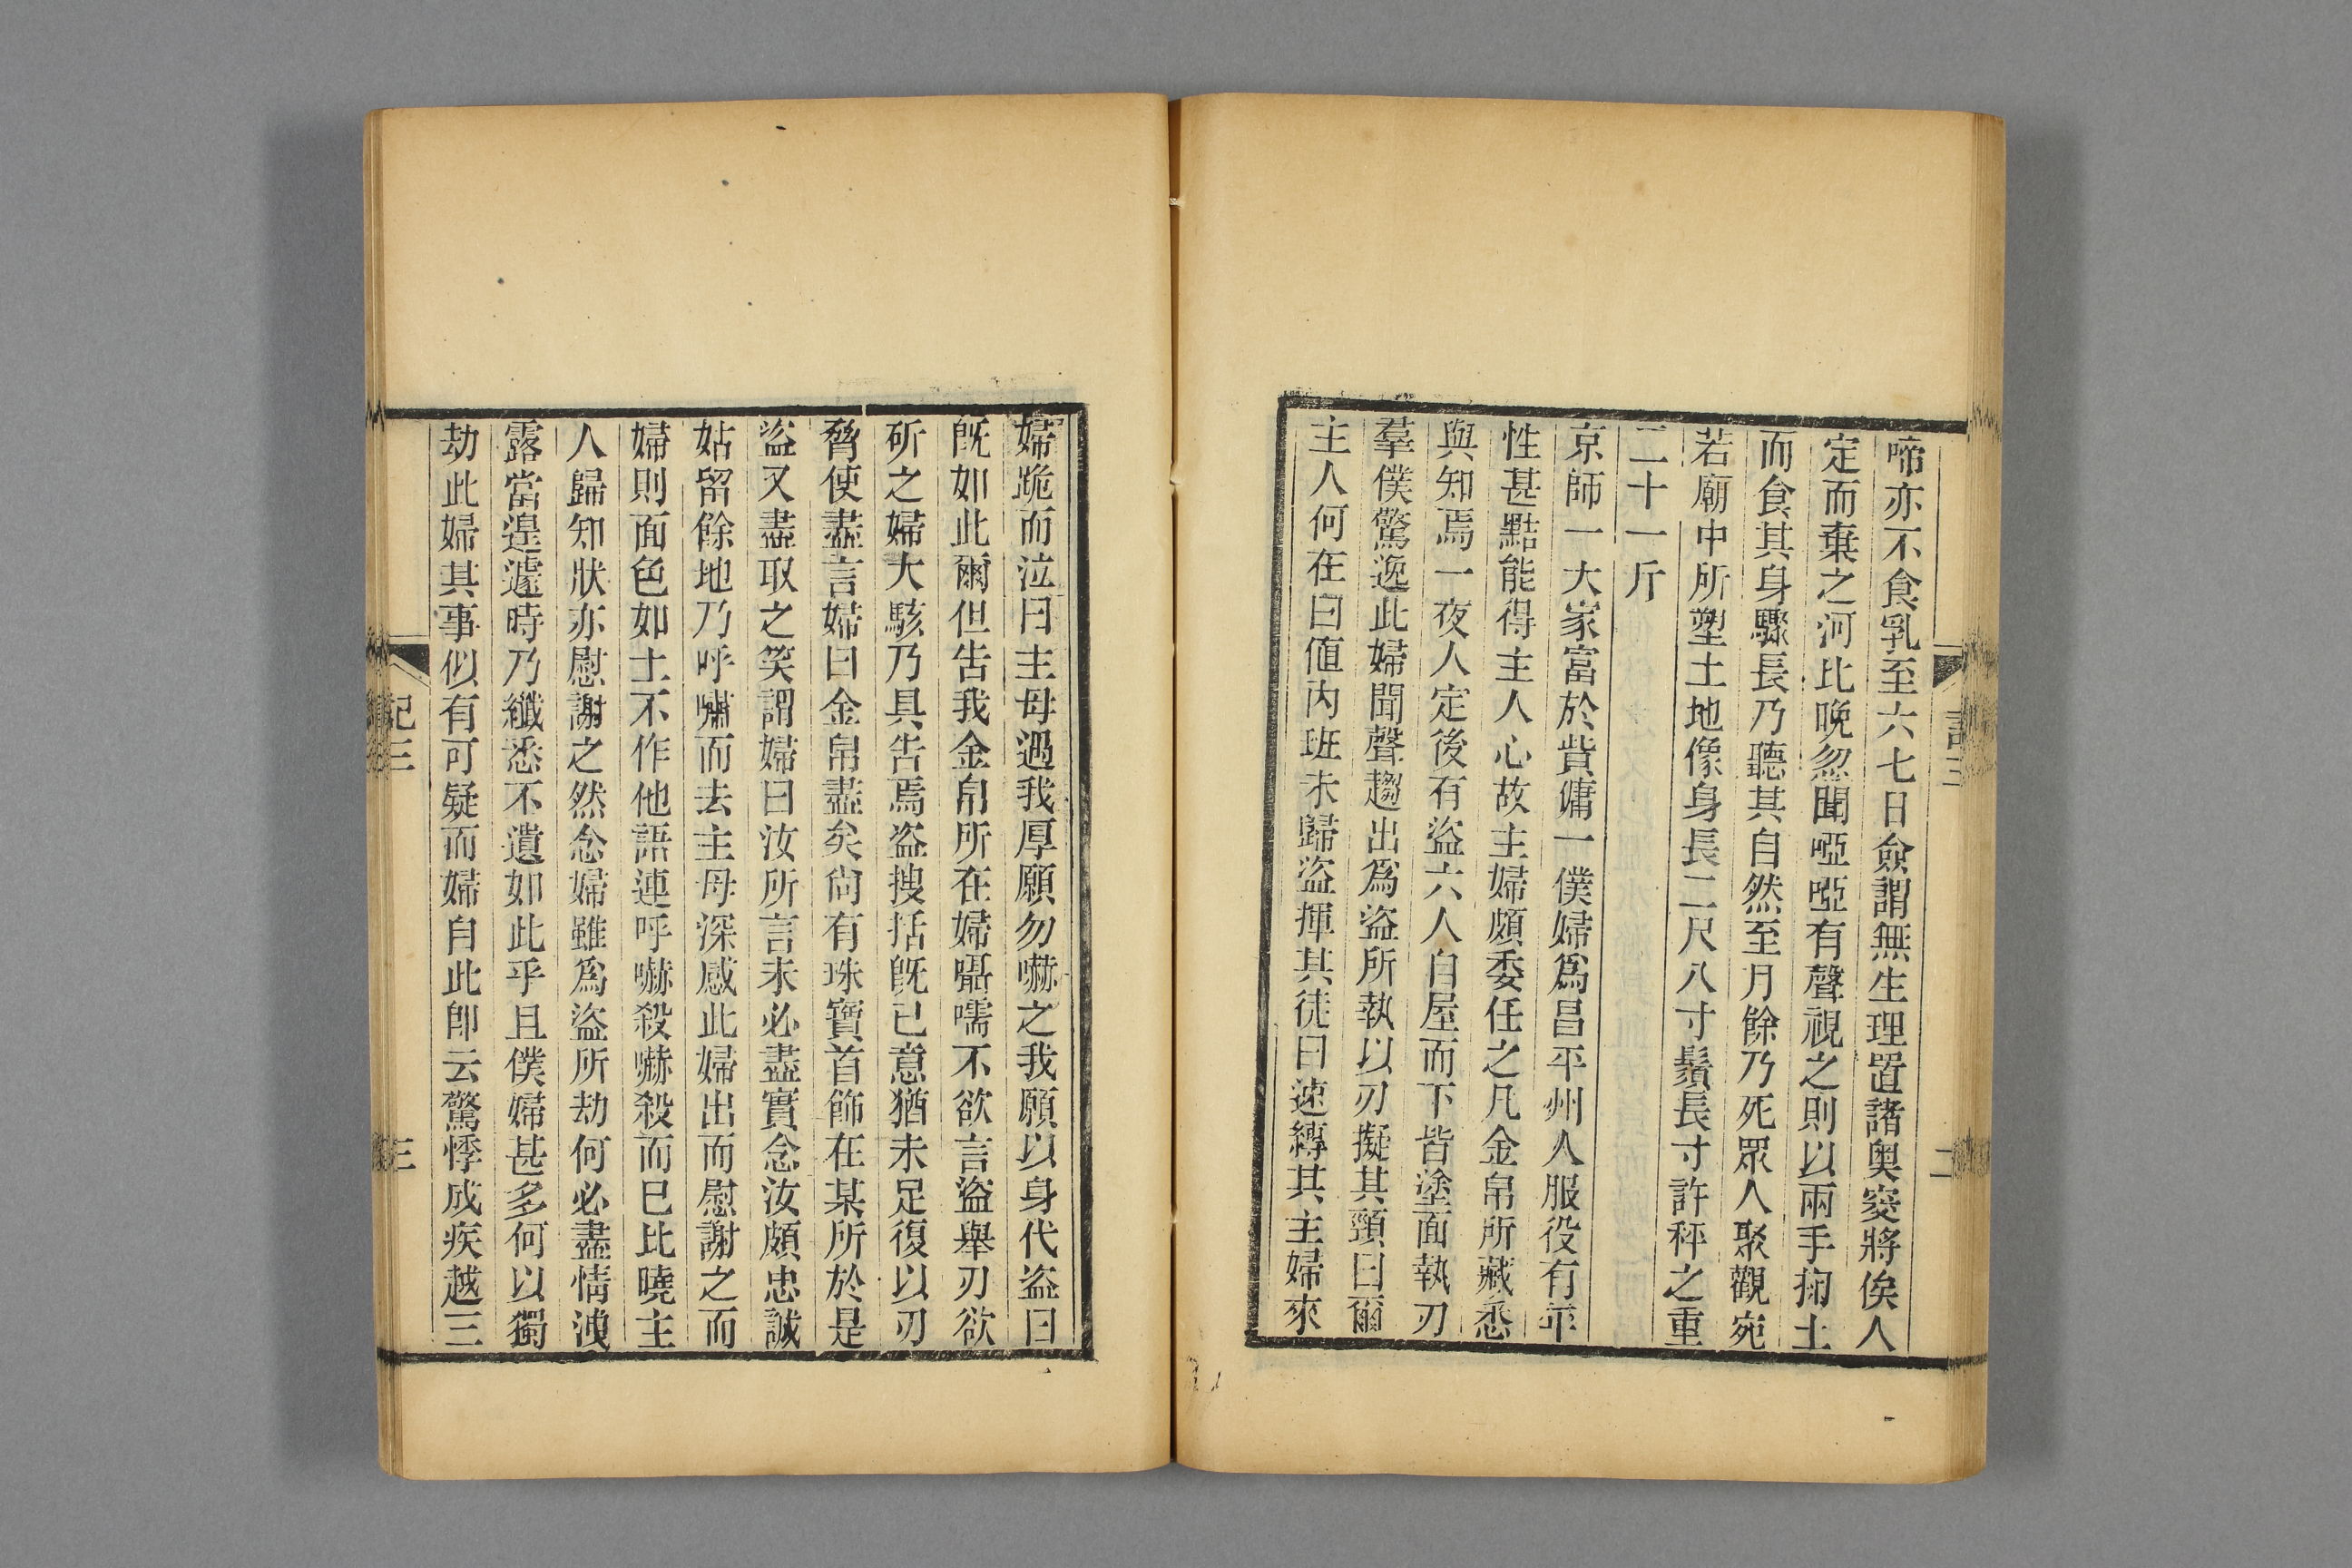 啼亦不食乳至六七日僉謂無生理置諸奧窔將俟人
定而棄之河比晚忽聞啞啞有聲視之則以兩手掬土
而食其身驟長乃聽其自然至月餘乃死眾人聚觀宛
若廟中所塑土地像身長二尺八寸鬚長寸許秤之重
二十一斤
京師一大家富於貲傭一僕婦爲昌平州人服役有年
性甚黠能得主人心故主婦頗委任之凡金帛所藏悉
與知焉一夜人定後有盜六人自屋而下皆塗面執刃
羣僕驚逸此婦聞聲趨出爲盜所執以刃擬其頸曰爾
主人何在曰值內班未歸盜揮其徒曰速縛其主婦來
記三
二
婦跪而泣曰主母遇我厚願勿嚇之我願以身代盜曰
旣如此爾但告我金帛所在婦囁嚅不欲言盜舉刃欲
斫之婦大駭乃具告焉盜搜括旣已意猶未足復以刃
脅使盡言婦曰金帛盡矣尙有珠寶首飾在某所於是
盜又盡取之笑謂婦曰汝所言未必盡實念汝頗忠誠
姑留餘地乃呼嘯而去主母深感此婦出而慰謝之而
婦則面色如土不作他語連呼嚇殺嚇殺而已比曉主
人歸知狀亦慰謝之然念婦雖爲盜所劫何必盡情洩
露當遑遽時乃纖悉不遺如此乎且僕婦甚多何以獨
劫此婦其事似有可疑而婦自此卽云驚悸成疾越三
記三
三